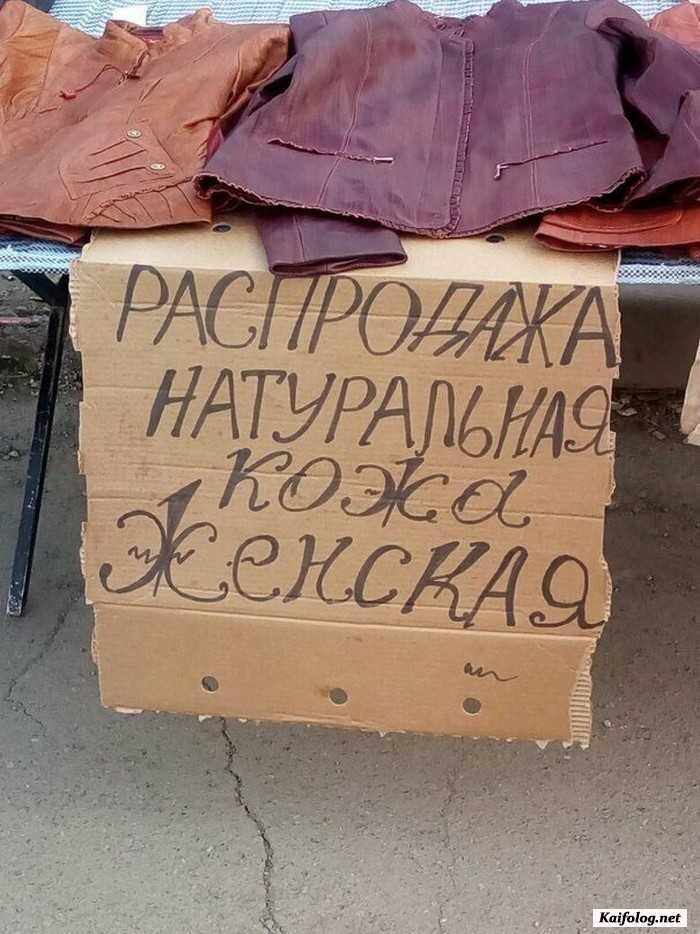 РАСПРОДАЖА
НАТУРАЛЬНАЯ
КОЖА
ЖЕНСКАЯ
Kaifolog.net